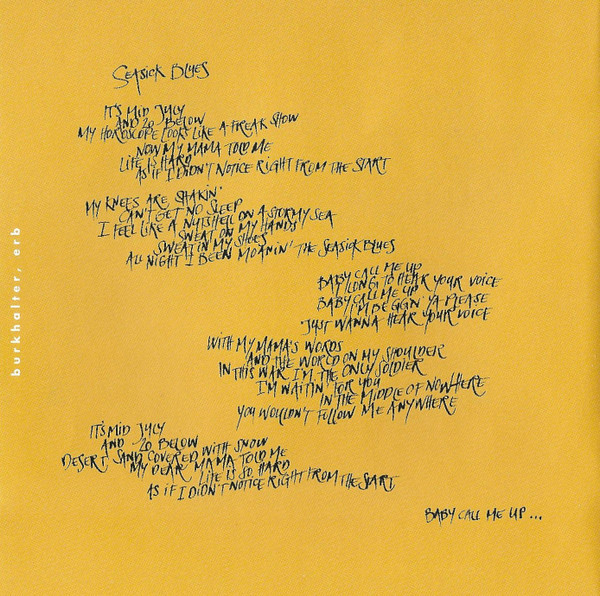 SEASICK BLUES
IT'S MID JULY
AND 20 BELOW
MY HOROSCOPE LOOKS LIKE A FREAK SHOW
NOW MY MAMA TOLD ME
LIFE IS HARD
AS IF I DIDN'T NOTICE RIGHT FROM THE START
MY KNEES ARE SHAKIN'
CAN'T GET NO SLEEP
I FEEL LIKE A NUTSHELL ON A STORMY SEA
SWEAT ON MY HANDS
SWEAT IN MY SHOES
ALL NIGHT I BEEN MOANIN' THE SEASICK BLUES
BABY CALL ME UP
I LONG TO HEAR YOUR VOICE
BABY CALL ME UP
I'M BEGGIN' YA PLEASE
JUST WANNA HEAR YOUR VOICE
WITH MY MAMA'S WORDS
AND THE WORLD ON MY SHOULDER
IN THIS WAR I'M THE ONLY SOLDIER
I'M WAITIN' FOR YOU
IN THE MIDDLE OF NOWHERE
YOU WOULDN'T FOLLOW ME ANYWHERE
IT'S MID JULY
AND 20 BELOW
DESERT SAND COVERED WITH SNOW
MY DEAR MAMA TOLD ME
LIFE IS SO HARD
AS IF I DIDN'T NOTICE RIGHT FROM THE START
BABY CALL ME UP ...
burkhalter, erb